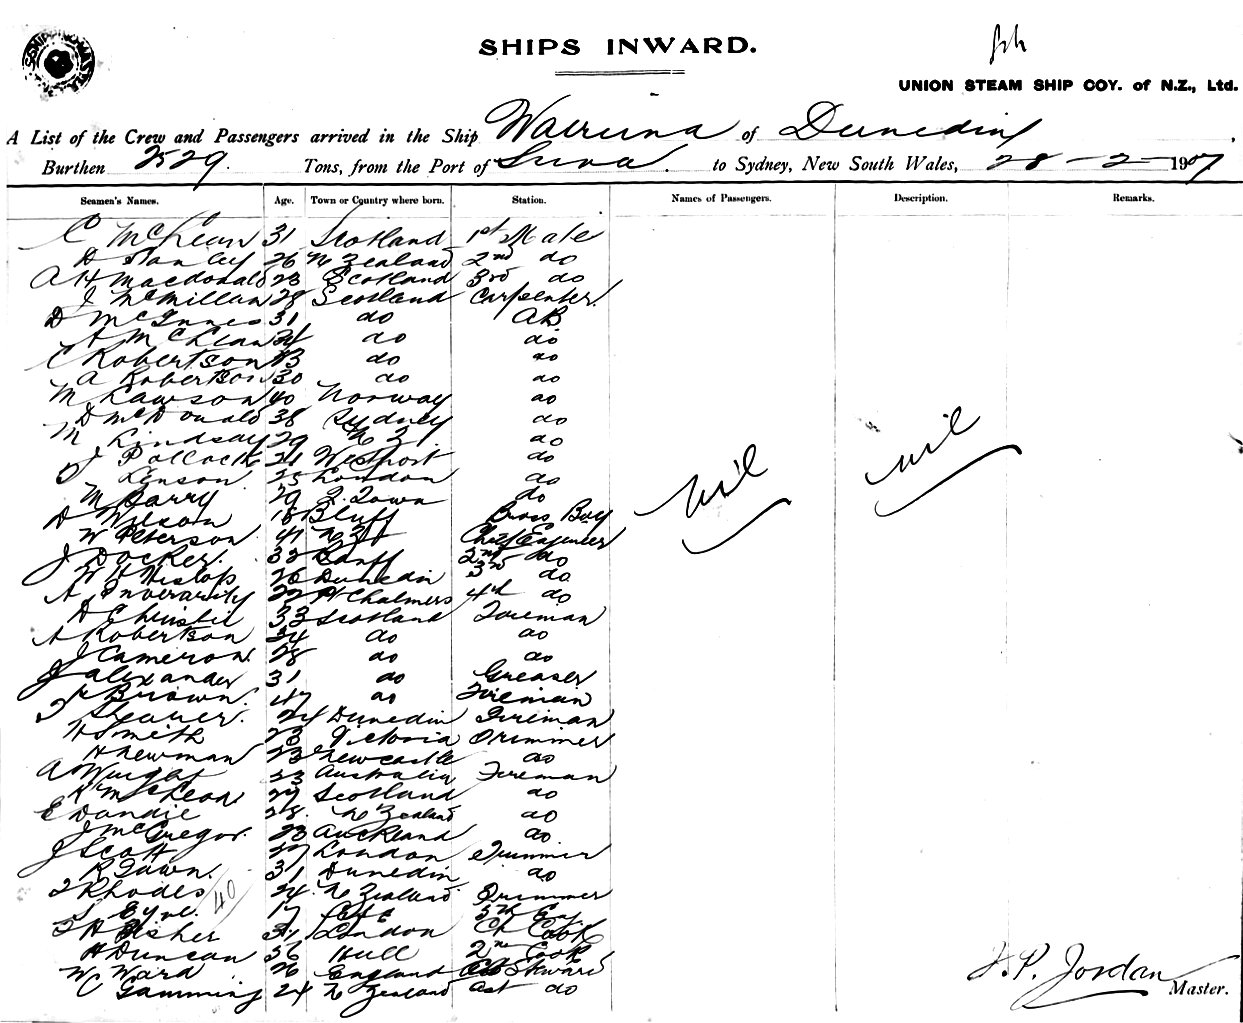 SHIPS INWARD.
UNION STEAM SHIP COY. of N.Z., Ltd.
A List of the Crew and Passengers arrived in the Ship Wairuna of Dunedin,
Burthen 2529 Tons, from the Port of Suva to Sydney, New South Wales, 28-2-1907
Seamen's Names. Age. Town or Country where born. Station. Names of Passengers. Description. Remarks.
C McLean 31 Scotland 1st Mate
D Stanley 26 N Zealand 2nd do
A H Macdonald 23 Scotland 3rd do
J McMillan 28 Scotland Carpenter
D McInnes 31 do AB
A McLean do do
C Robertson do do
A Robertson 30 do do
M Lawson 40 Norway do
D McDonald 38 Sydney do
M Lindsay 29 N Z do
J Pollock 21 Westport do
Lenson 25 London do
M Barry 29 Town do
D Wilson 18 Bluff Brass Boy
W Peterson 41 N Z Chief Engineer
J Docker 32 Banff 2nd do
W H Hislop 26 Dunedin 3rd do
A Inverarity 22 Pt Chalmers 4th do
D Christie 33 Scotland Foreman
A Robertson 34 do do
J Cameron 28 do do
J Alexander 31 do Greaser
Brown 47 do Fireman
Shearer 24 Dunedin Fireman
H Smith 23 Victoria Trimmer
H Newman 23 Newcastle do
A Wright 23 Australia Fireman
K McLeod 27 Scotland do
E Dandie 28 N Zealand do
J McGregor 23 Auckland do
J Scott 27 London Trimmer
R Gawn 31 Dunedin do
T Rhodes 24 N Zealand Trimmer
40
Eyre 17 5th Eng
T H Fisher London Ch Cook
H Duncan 36 Hull 2nd Cook
W Ward 26 England Ch Steward
C Gamming 24 N Zealand Ast do
nil
nil
J. P. Jordan
Master.